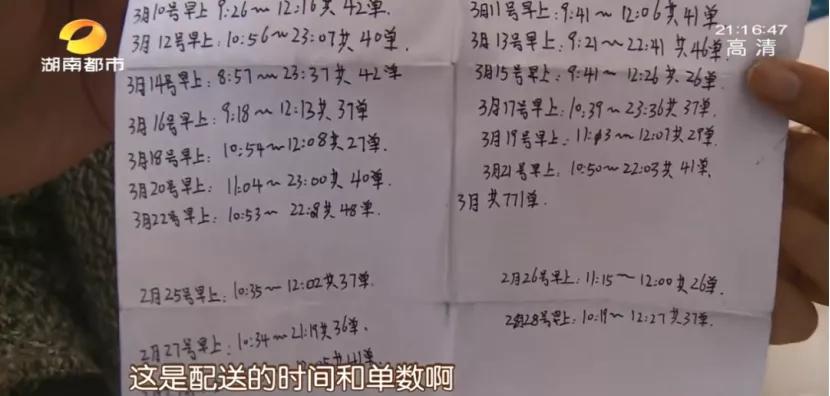 3月10号早上:9:26~12:16共42单
3月11号早上:9:41~12:06共41单
3月12号早上:10:56~23:07共40单.
3月13号早上:9:21~22:41共46单.
3月14号早上:8:57~23:37共42单
3月15号早上:9:41~12:26共26单.
3月16号早上:9:18~12:13共37单
3月17号早上:10:39~23:36共37单.
3月18号早上:10:54~12:08共27单.
3月19号早上:11:03~12:07共29单.
3月20号早上:11:04~23:00共40单.
3月21号早上:10:50~22:03共41单.
3月22号早上:10:53~共48单.
3月共771单.
2月25号早上:10:35~12:02共37单.
2月26号早上:11:15~12:00共26单.
2月27号早上:10:34~21:19共36单.
2月28号早上:10:19~12:27共37单.
共41单
湖南都市
21:16:47
高清
这是配送的时间和单数啊